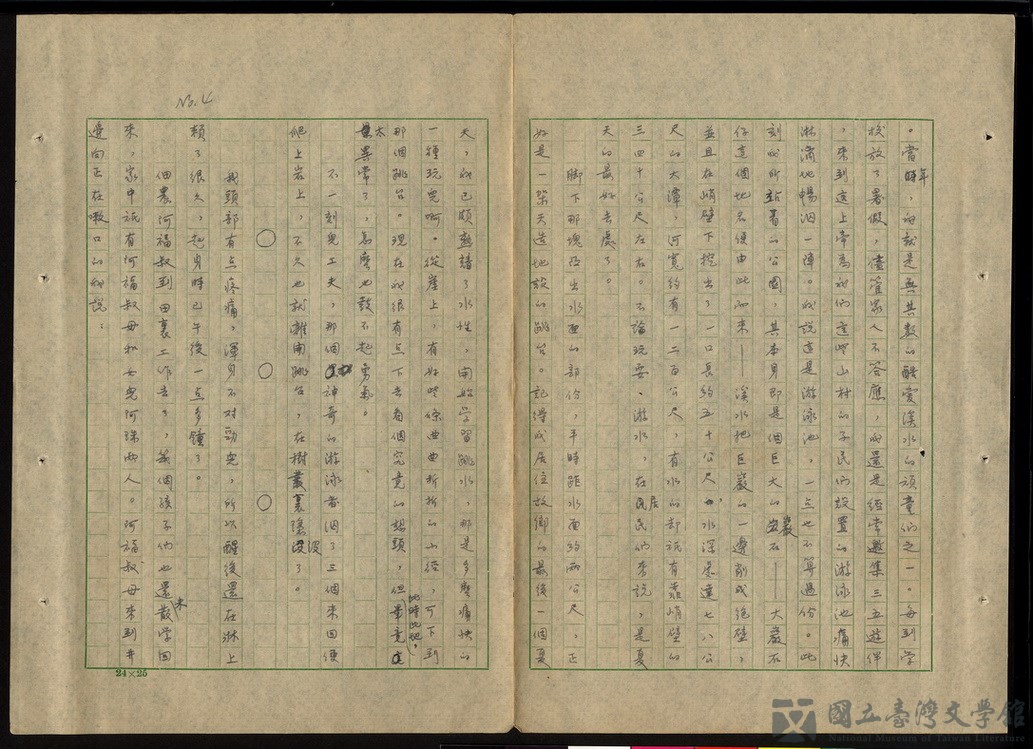 。當年時，我就是無其數的酷愛溪水的頑童們之一。每到學
校放了暑假，儘管家人不答應，我還是經常邀集三五遊伴
，來到這上帝為我們這些山村的子民們設置的游泳池痛快
淋漓地暢泅一陣。我說這是游泳池，一点也不算過份。此
刻我所站着的公園，其本身即是個巨大的巖石——大巖石
仔這個地名便由此而來——溪水把巨巖的一邊削成絕壁，
並且在峭壁下挖出了一口長約五十公尺，水深處達七八公
尺的大潭，河寬約有一二百公尺，有水的却祇有靠峭壁的
三四十公尺左右。不論玩耍、游水，在居民們來說，是夏
天的最好去處了。
脚下那塊凸出水面的部份，平時距水面約兩公尺，正
好是一架天造地設的跳台。記得我居住故鄉的最後一個夏
No. 4
天，我已頗熟諳了水性，開始學習跳水，那是多麼痛快的
一種玩兒啊。從崖上，有好些條曲曲折折的山徑，可下到
那個跳台。現在我很有点下去看個究竟的想頭，但此時此地，
太異常了，怎麼也鼓不起勇氣。
不一刻兒工夫，那個神奇的游泳者泅了三個來回便
爬上岩上，不久也就離開跳台，在樹叢裏隱沒了。
○ ○ ○
我頭部有点疼痛，渾身不對勁兒，所以醒後還在淋上
賴了很久，起身時已午後一点多鐘了。
佃農阿福叔到田裏工作去了，幾個孩子們也還未散學回
來，家中祇有阿福叔母和女兒阿珠兩人。阿福叔母來到井
邊向正在嗽口的我說：
24×25
國立臺灣文學館
National Museum of Taiwan Literature